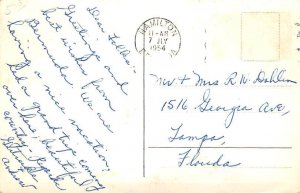 Dear Folks:-
Greetings and
best wishes from
Bermuda. We are
having a nice vacation.
Had a good trip coming
over. This is a beautiful
country. People
HAMILTON
11-AM
7 JLY
1954
Mr + Mrs R. W. Dahlin
1516 Georgia Ave,
Tampa,
Florida